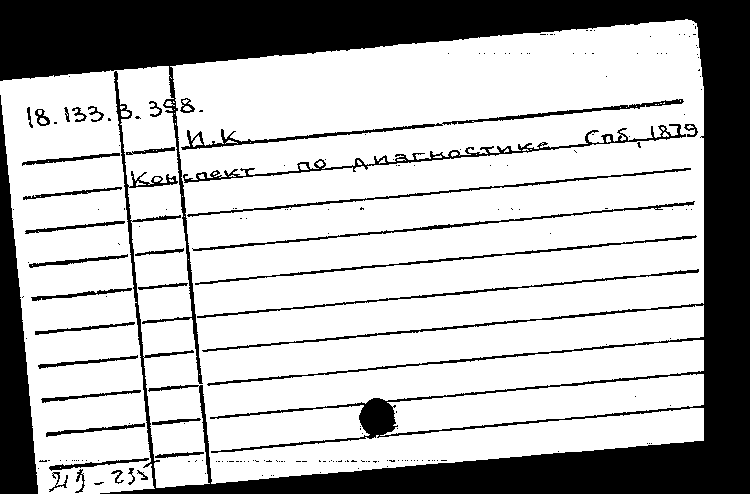 18.133.3.398.
И.К.
Конспект по диагностике Спб, 1879.
219 - 235